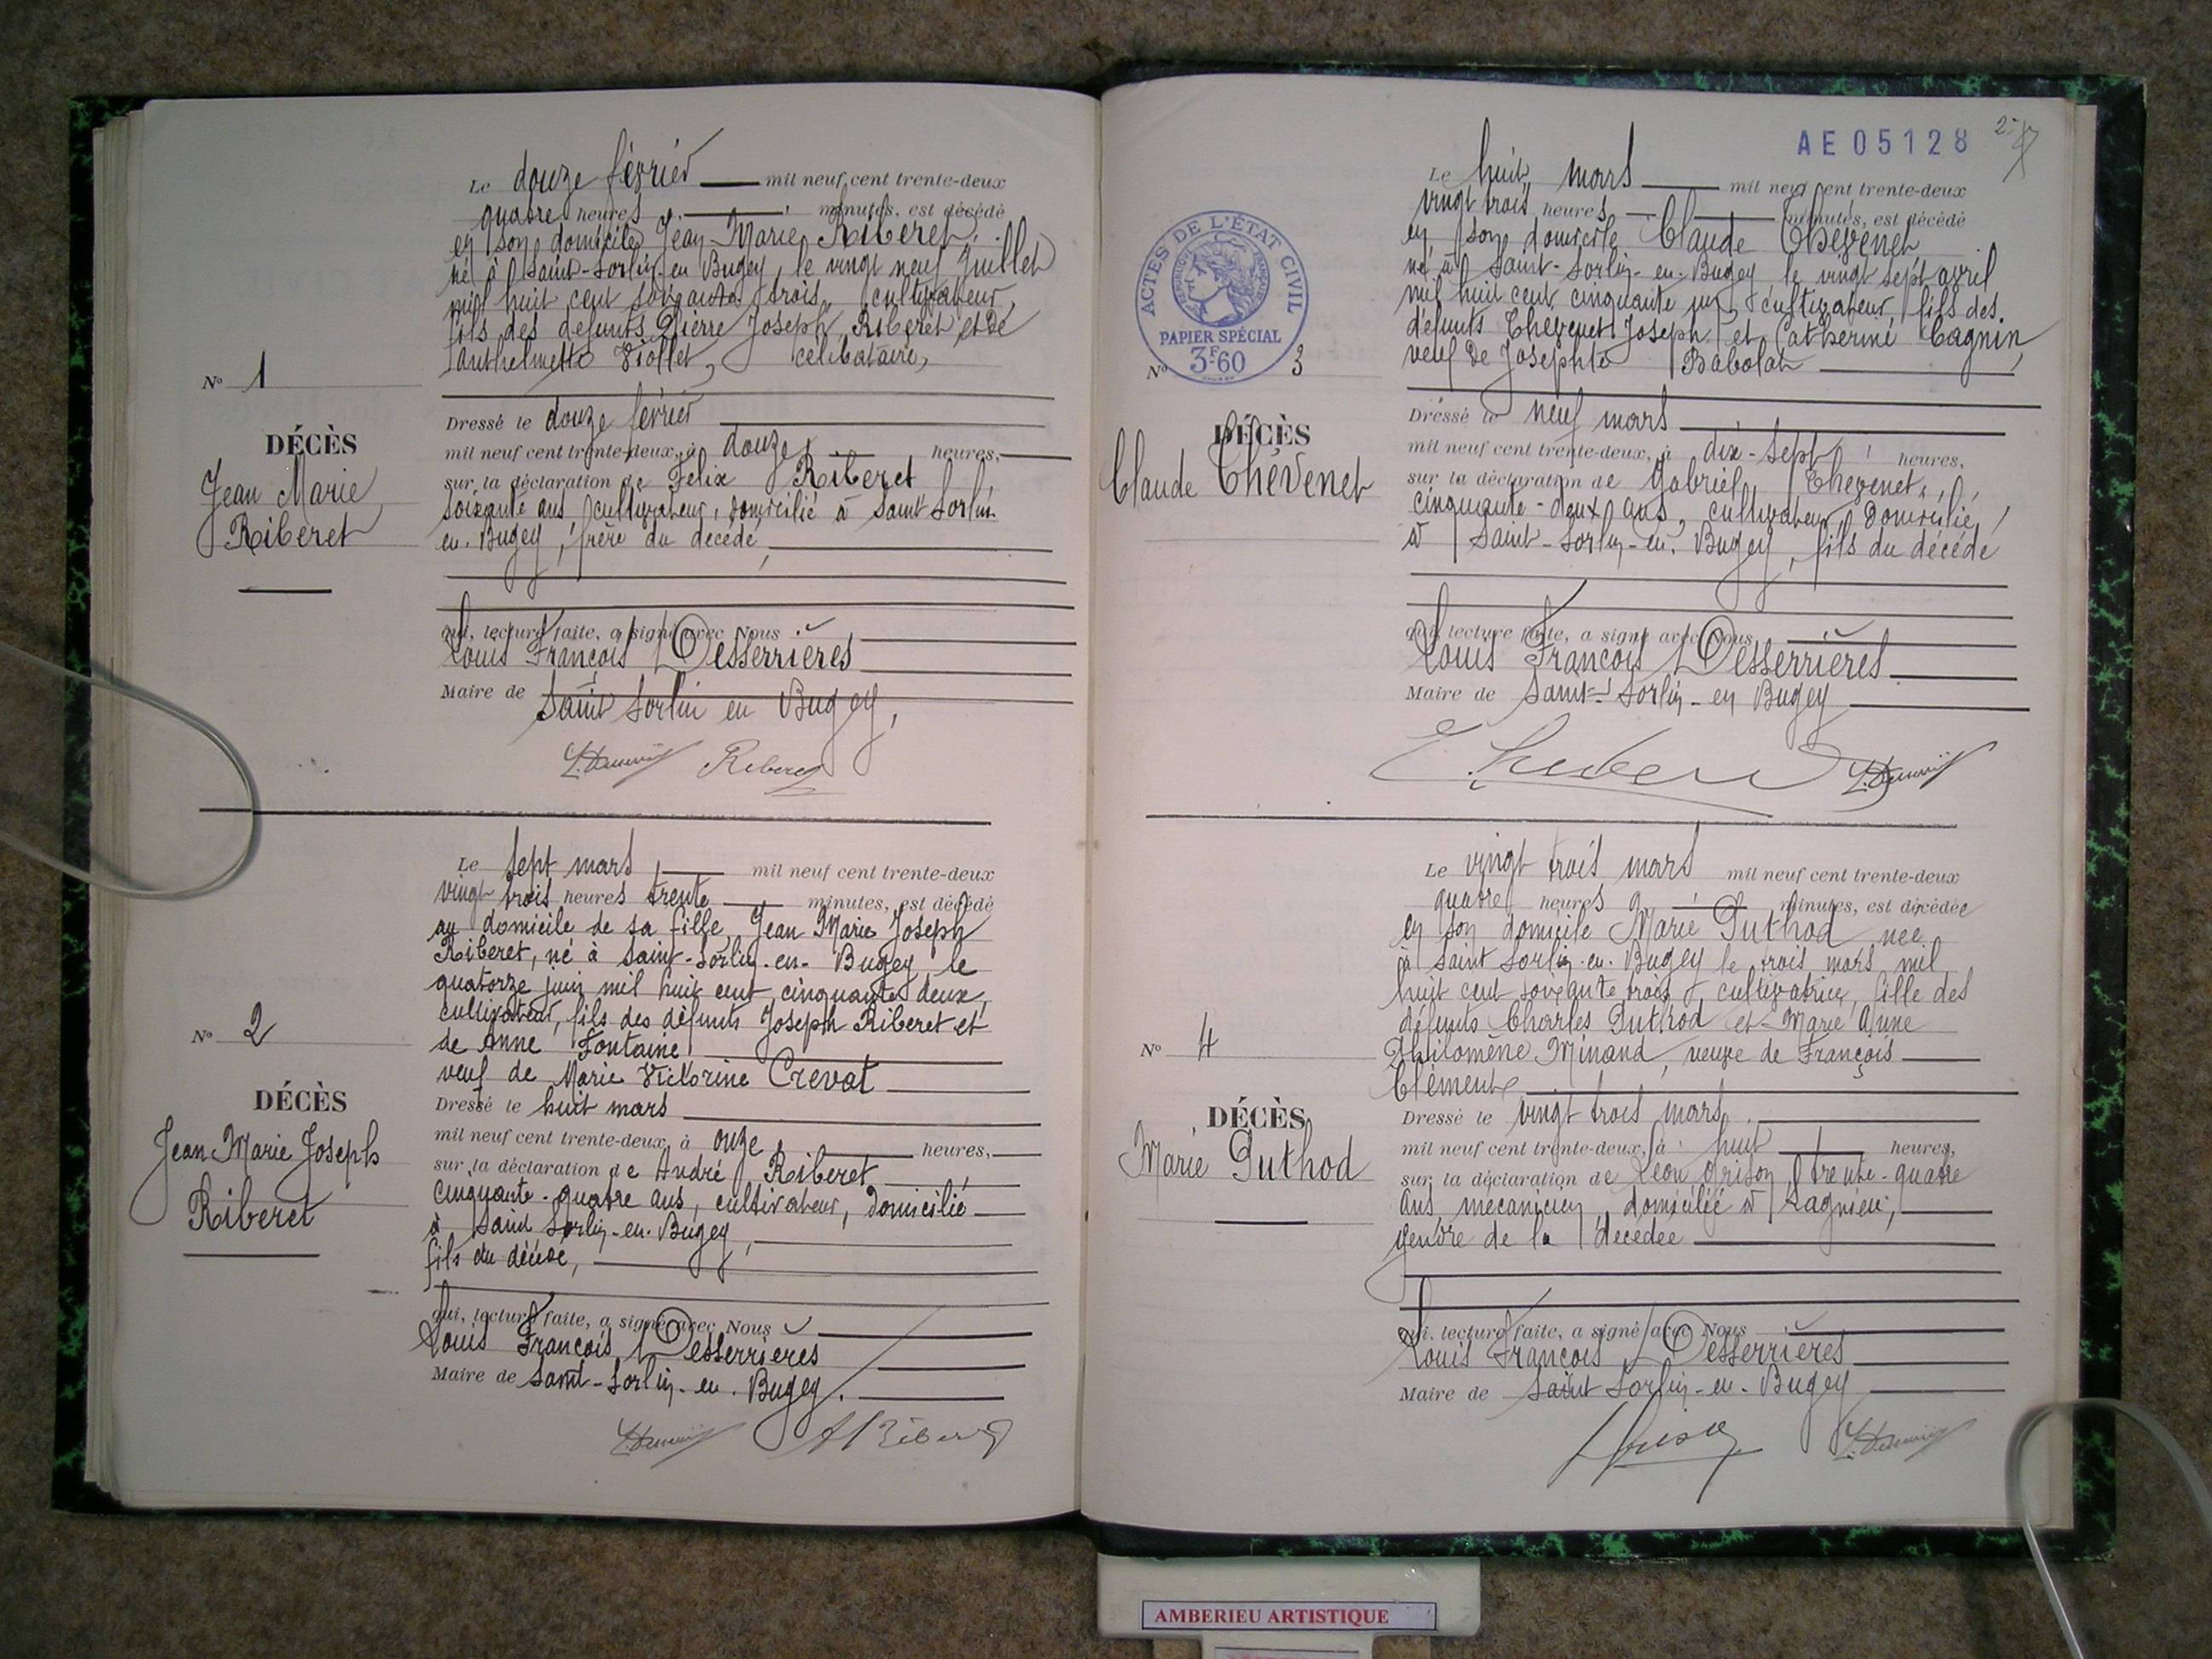 Le douze février mil neuf cent trente-deux
quatre heures minutes, est décédé
en son domicile Jean-Marie Riberet,
né à Saint-Sorlin-en Bugey, le vingt neuf Juillet
mil huit cent soixante trois, cultivateur,
fils des defunts Pierre Joseph Riberet et de
Anthelmette Viollet, célibataire,
N° 1
DÉCÈS
Jean Marie
Riberet
Dressé le douze février
mil neuf cent trente-deux, à douze heures,
sur la déclaration de Felix Riberet
soixante ans, cultivateur, domicilié à Saint Sorlin
en-Bugey, frère du decédé,
qui, lecture faite, a signé avec Nous
Louis François Desserrières
Maire de Saint Sorlin en Bugey,
Riberet
Le sept mars mil neuf cent trente-deux
vingt trois heures trente minutes, est décédé
au domicile de sa fille, Jean Marie Joseph
Riberet, né à Saint-Sorlin-en-Bugey le
quatorze juin mil huit cent cinquante deux,
cultivateur, fils des défunts Joseph Riberet et
de Anne Fontaine
veuf de Marie Victorine Crevat
N° 2
DÉCÈS
Jean Marie Joseph
Riberet
Dressé le huit mars
mil neuf cent trente-deux, à onze heures,
sur la déclaration de André Riberet
cinquante-quatre ans, cultivateur, domicilié
à Saint Sorlin-en-Bugey,
fils du décédé,
qui, lecture faite, a signé avec Nous
Louis François Desserrières
Maire de Saint-Sorlin-en-Bugey.
A Riberet
AE05128
2
Le huit mars mil neuf cent trente-deux
vingt trois heures minutes, est décédé
en son domicile Claude Chevenet
né à Saint-Sorlin-en-Bugey le vingt sept avril
mil huit cent cinquante un, cultivateur, fils des
défunts Chevenet Joseph et Catherine Cagnin
veuf de Josephte Babolat
ACTES DE L'ÉTAT CIVIL
RÉPUBLIQUE FRANÇAISE
PAPIER SPÉCIAL
3F-60
N° 3
DÉCÈS
Claude Chévenet
Dressé le neuf mars
mil neuf cent trente-deux, à dix-sept heures,
sur la déclaration de Gabriel Chevenet,
cinquante-deux ans, cultivateur, domicilié
à Saint-Sorlin-en-Bugey, fils du décédé
qui, lecture faite, a signé avec Nous
Louis François Desserrières
Maire de Saint-Sorlin-en Bugey
Le vingt trois mars mil neuf cent trente-deux
quatre heures minutes, est décédée
en son domicile Marie Puthod née
à Saint Sorlin-en-Bugey le trois mars mil
huit cent soixante trois, cultivatrice, fille des
défunts Charles Puthod et Marie Anne
Philomène Minand, veuve de François
Clément
N° 4
DÉCÈS
Marie Puthod
Dressé le vingt trois mars
mil neuf cent trente-deux, à huit heures,
sur la déclaration de Léon Grison, trente-quatre
ans, mécanicien, domicilié à Lagnieu,
gendre de la décédée
qui, lecture faite, a signé avec Nous
Louis François Desserrières
Maire de Saint Sorlin-en-Bugey
Grison
AMBERIEU ARTISTIQUE